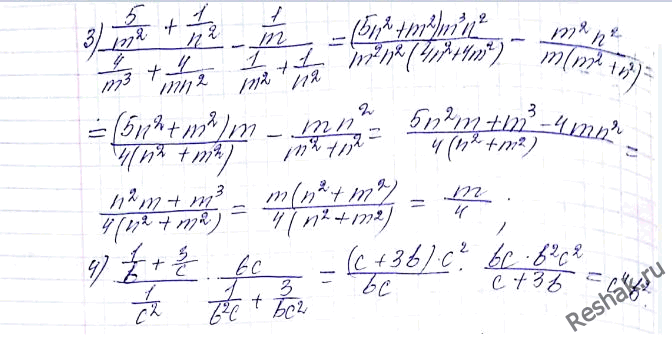 3) (5/m² + 1/n²)/(4/m³ + 4/mn²) − (1/m)/(1/m² + 1/n²) = (5n²+m²)m³n²/(m²n²(4n²+4m²)) − m²n²/(m(m²+n²)) =
= (5n²+m²)m/(4(n²+m²)) − mn²/(m²+n²) = (5n²m+m³−4mn²)/(4(n²+m²)) =
(n²m+m³)/(4(n²+m²)) = m(n²+m²)/(4(n²+m²)) = m/4 ;
4) (1/b + 3/c)/(1/c²) · bc/(1/b²c + 3/bc²) = (c+3b)·c²/bc · bc·b²c²/(c+3b) = c⁴b².
Reshak.ru